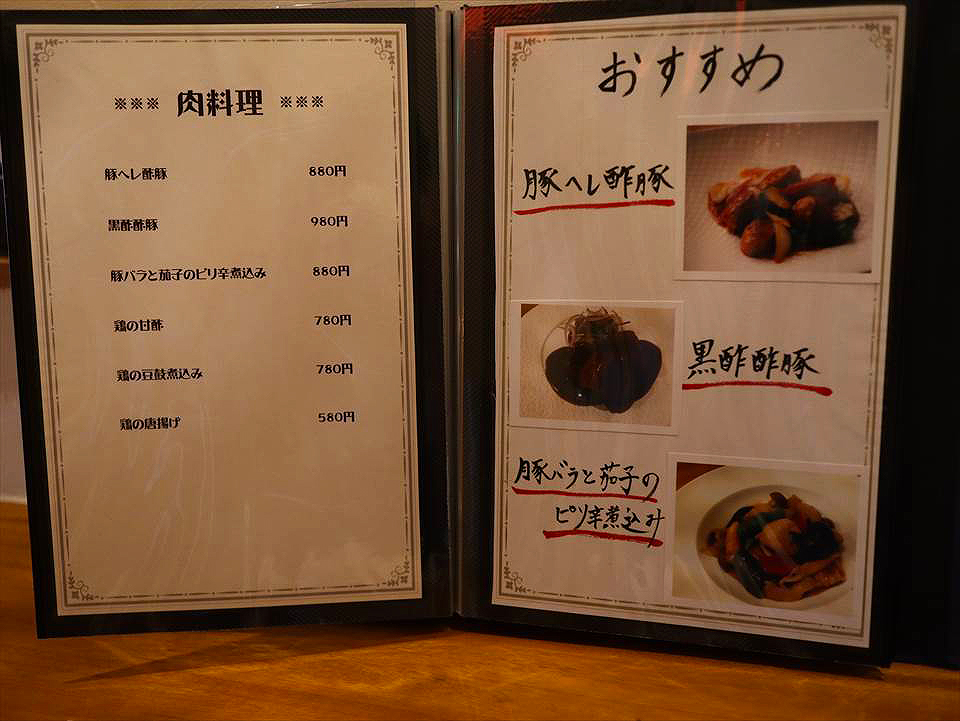 ※※※ 肉料理 ※※※
豚ヘレ酢豚 880円
黒酢酢豚 980円
豚バラと茄子のピリ辛煮込み 880円
鶏の甘酢 780円
鶏の豆鼓煮込み 780円
鶏の唐揚げ 580円
おすすめ
豚ヘレ酢豚
黒酢酢豚
豚バラと茄子の
ピリ辛煮込み